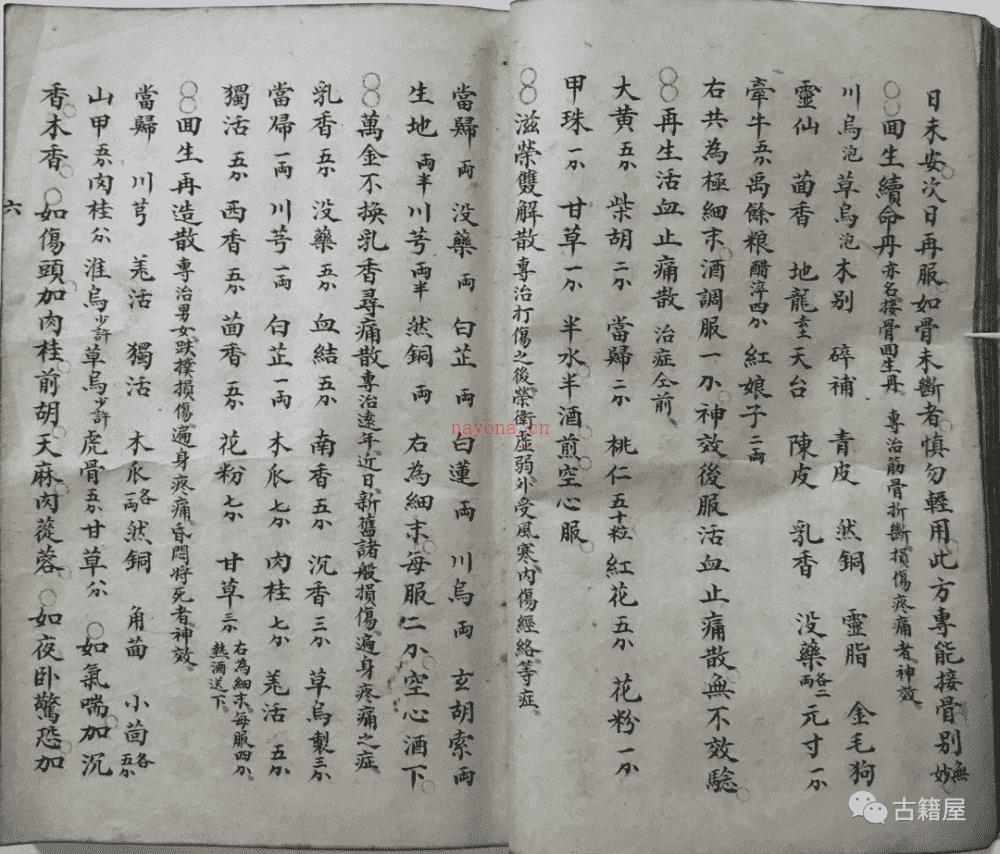 日未安次日再服如骨未斷者慎勿輕用此方專能接骨別無妙
〇〇回生續命丹亦名接骨回生丹 專治筋骨折斷損傷疼痛者神效
川烏泡 草烏泡 木別 碎補 青皮 然銅 靈脂 金毛狗
靈仙 茴香 地龍去土 天台 陳皮 乳香 没藥各二両 元寸一分
牽牛五分 禹餘粮醋淬四分 紅娘子二両
右共為極細末酒調服一分神效後服活血止痛散無不效騐
〇〇再生活血止痛散 治症仝前
大黄五分 柴胡二分 當歸二分 桃仁五十粒 紅花五分 花粉一分
甲珠一分 甘草一分 半水半酒煎空心服
〇〇滋榮雙解散專治打傷之後榮衛虚弱外受風寒内傷經絡等症
當歸両 没藥両 白芷両 白蓮両 川烏両 玄胡索両
生地両半 川芎両半 然銅両 右為細末每服二分空心酒下
〇〇萬金不換乳香尋痛散專治遠年近日新舊諸般損傷遍身疼痛之症
乳香五分 没藥五分 血結五分 南香五分 沉香三分 草烏製三分
當歸一両 川芎一両 白芷一両 木瓜七分 肉桂七分 羌活五分
獨活五分 西香五分 茴香五分 花粉七分 甘草三分 右為細末每服四分熱酒送下
〇〇回生再造散專治男女跌撲損傷遍身疼痛昏悶将死者神效
當歸 川芎 羌活 獨活 木瓜各一両 然銅 角茴 小茴各五分
山甲五分 肉桂分 淮烏少許 草烏少許 虎骨五分 甘草分 〇如氣喘加沉
香木香 〇如傷頭加肉桂前胡天麻肉蓯蓉 〇如夜卧驚恐加
六
nayona.cn
古籍屋